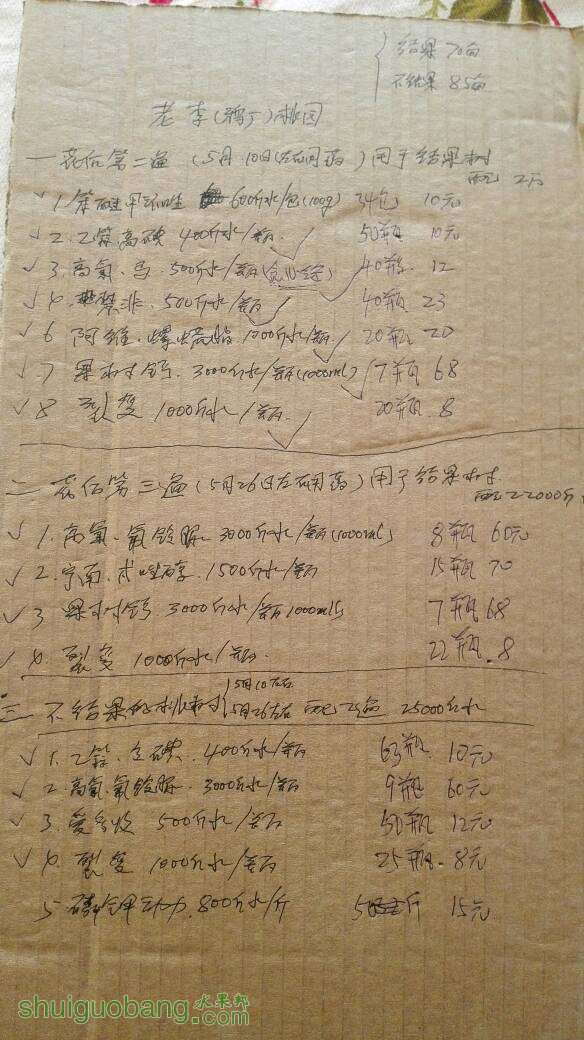 结果 70亩
不结果 85亩
老李()桃园
一 花后第二遍 (5月10日左右用药) 用于结果树
配 2万
1. 苯醚甲环唑 600斤水/包(100g) 34包 10元
2. 乙蒜高碘 400斤水/瓶 50瓶 10元
3. 高氯.马 500斤水/瓶 40瓶. 12
4. 非. 500斤水/瓶 40瓶. 23
6 阿维.螺螨酯 1000斤水/瓶 20瓶 20
7 果树钙. 3000斤水/瓶(1000ml) 7瓶 68
8 裂变 1000斤水/瓶. 20瓶. 8
二 花后第三遍 (5月26日左右用药) 用于结果树
配22000斤
1. 高氯.氟铃脲 3000斤水/瓶(1000ml) 8瓶 60元
2. 宁南.戊唑醇. 1500斤水/瓶 15瓶 70
3 果树钙. 3000斤水/瓶1000ml 7瓶 68
4. 裂变 1000斤水/瓶. 22瓶. 8
三 不结果的桃树 5月10左右
5月26左右 配2遍 25000斤水
1. 乙蒜.高碘. 400斤水/瓶 63瓶. 10元
2. 高氯.氟铃脲. 3000斤水/瓶 9瓶 60元
3. 500斤水/瓶 50瓶 12元
4. 裂变 1000斤水/瓶 25瓶. 8元
5. 磷钾动力. 800斤水/斤 斤 15元
水果邦
shuiguobang.com